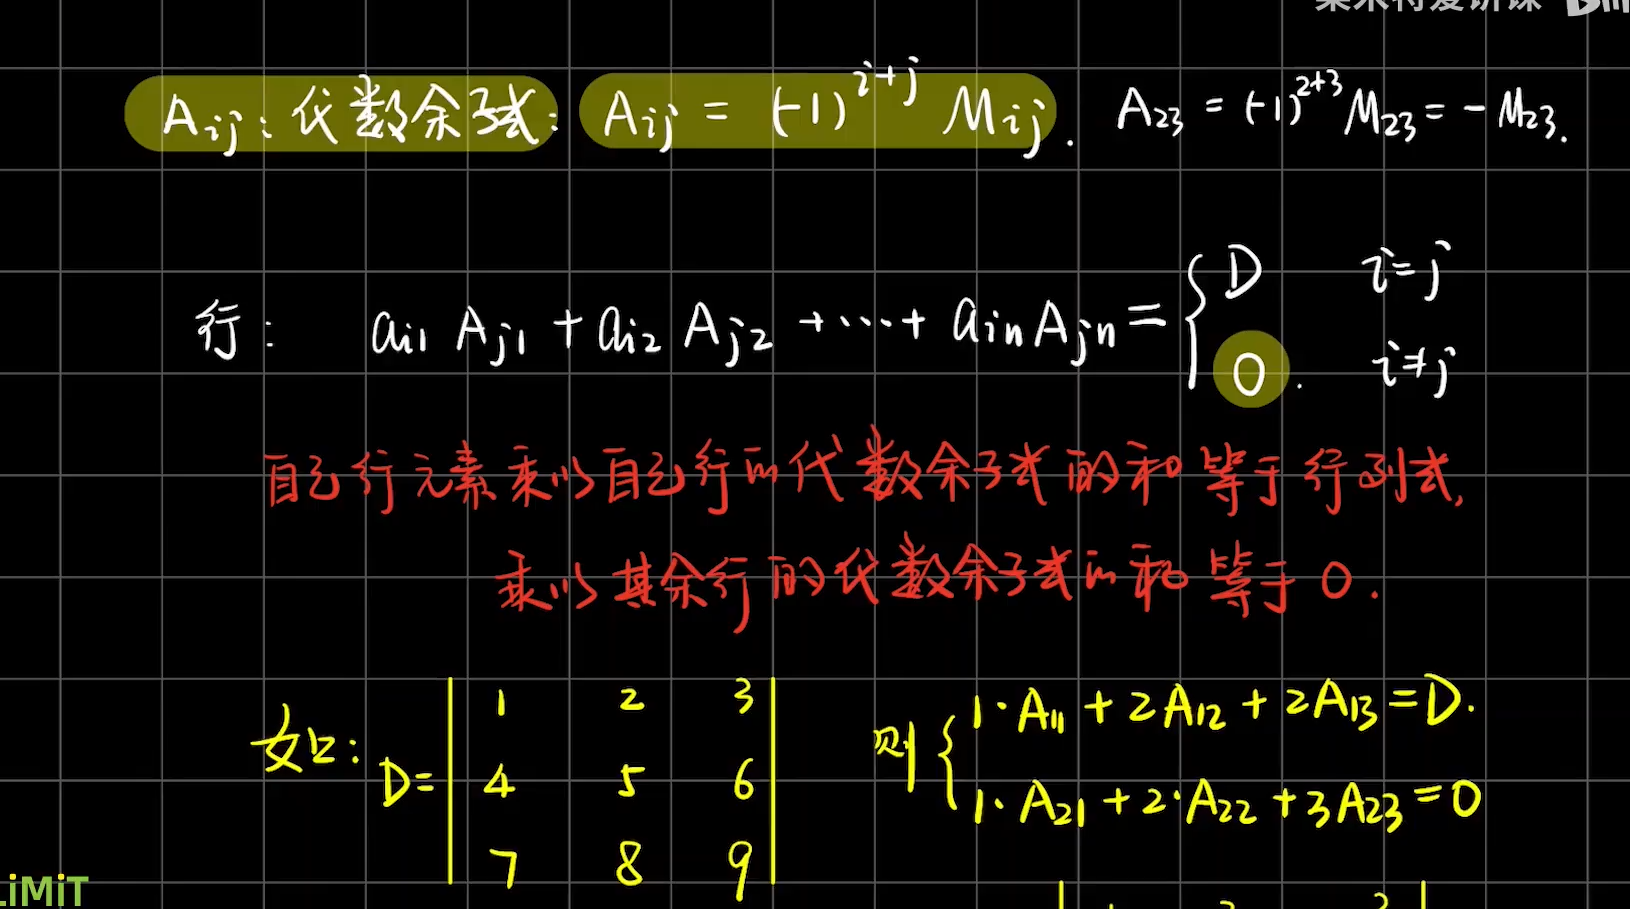 A_{ij}：代数余子式： A_{ij} = (-1)^{i+j} M_{ij}. A_{23} = (-1)^{2+3} M_{23} = -M_{23}.
行： a_{i1} A_{j1} + a_{i2} A_{j2} + ⋯ + a_{in} A_{jn} = { D i=j
0. i≠j
自己行元素乘以自己行的代数余子式的和等于行列式,
乘以其余行的代数余子式的和等于0.
如： D = | 1 2 3 |
| 4 5 6 |
| 7 8 9 |
则 { 1·A_{11} + 2A_{12} + 2A_{13} = D.
1·A_{21} + 2·A_{22} + 3A_{23} = 0
LiMiT